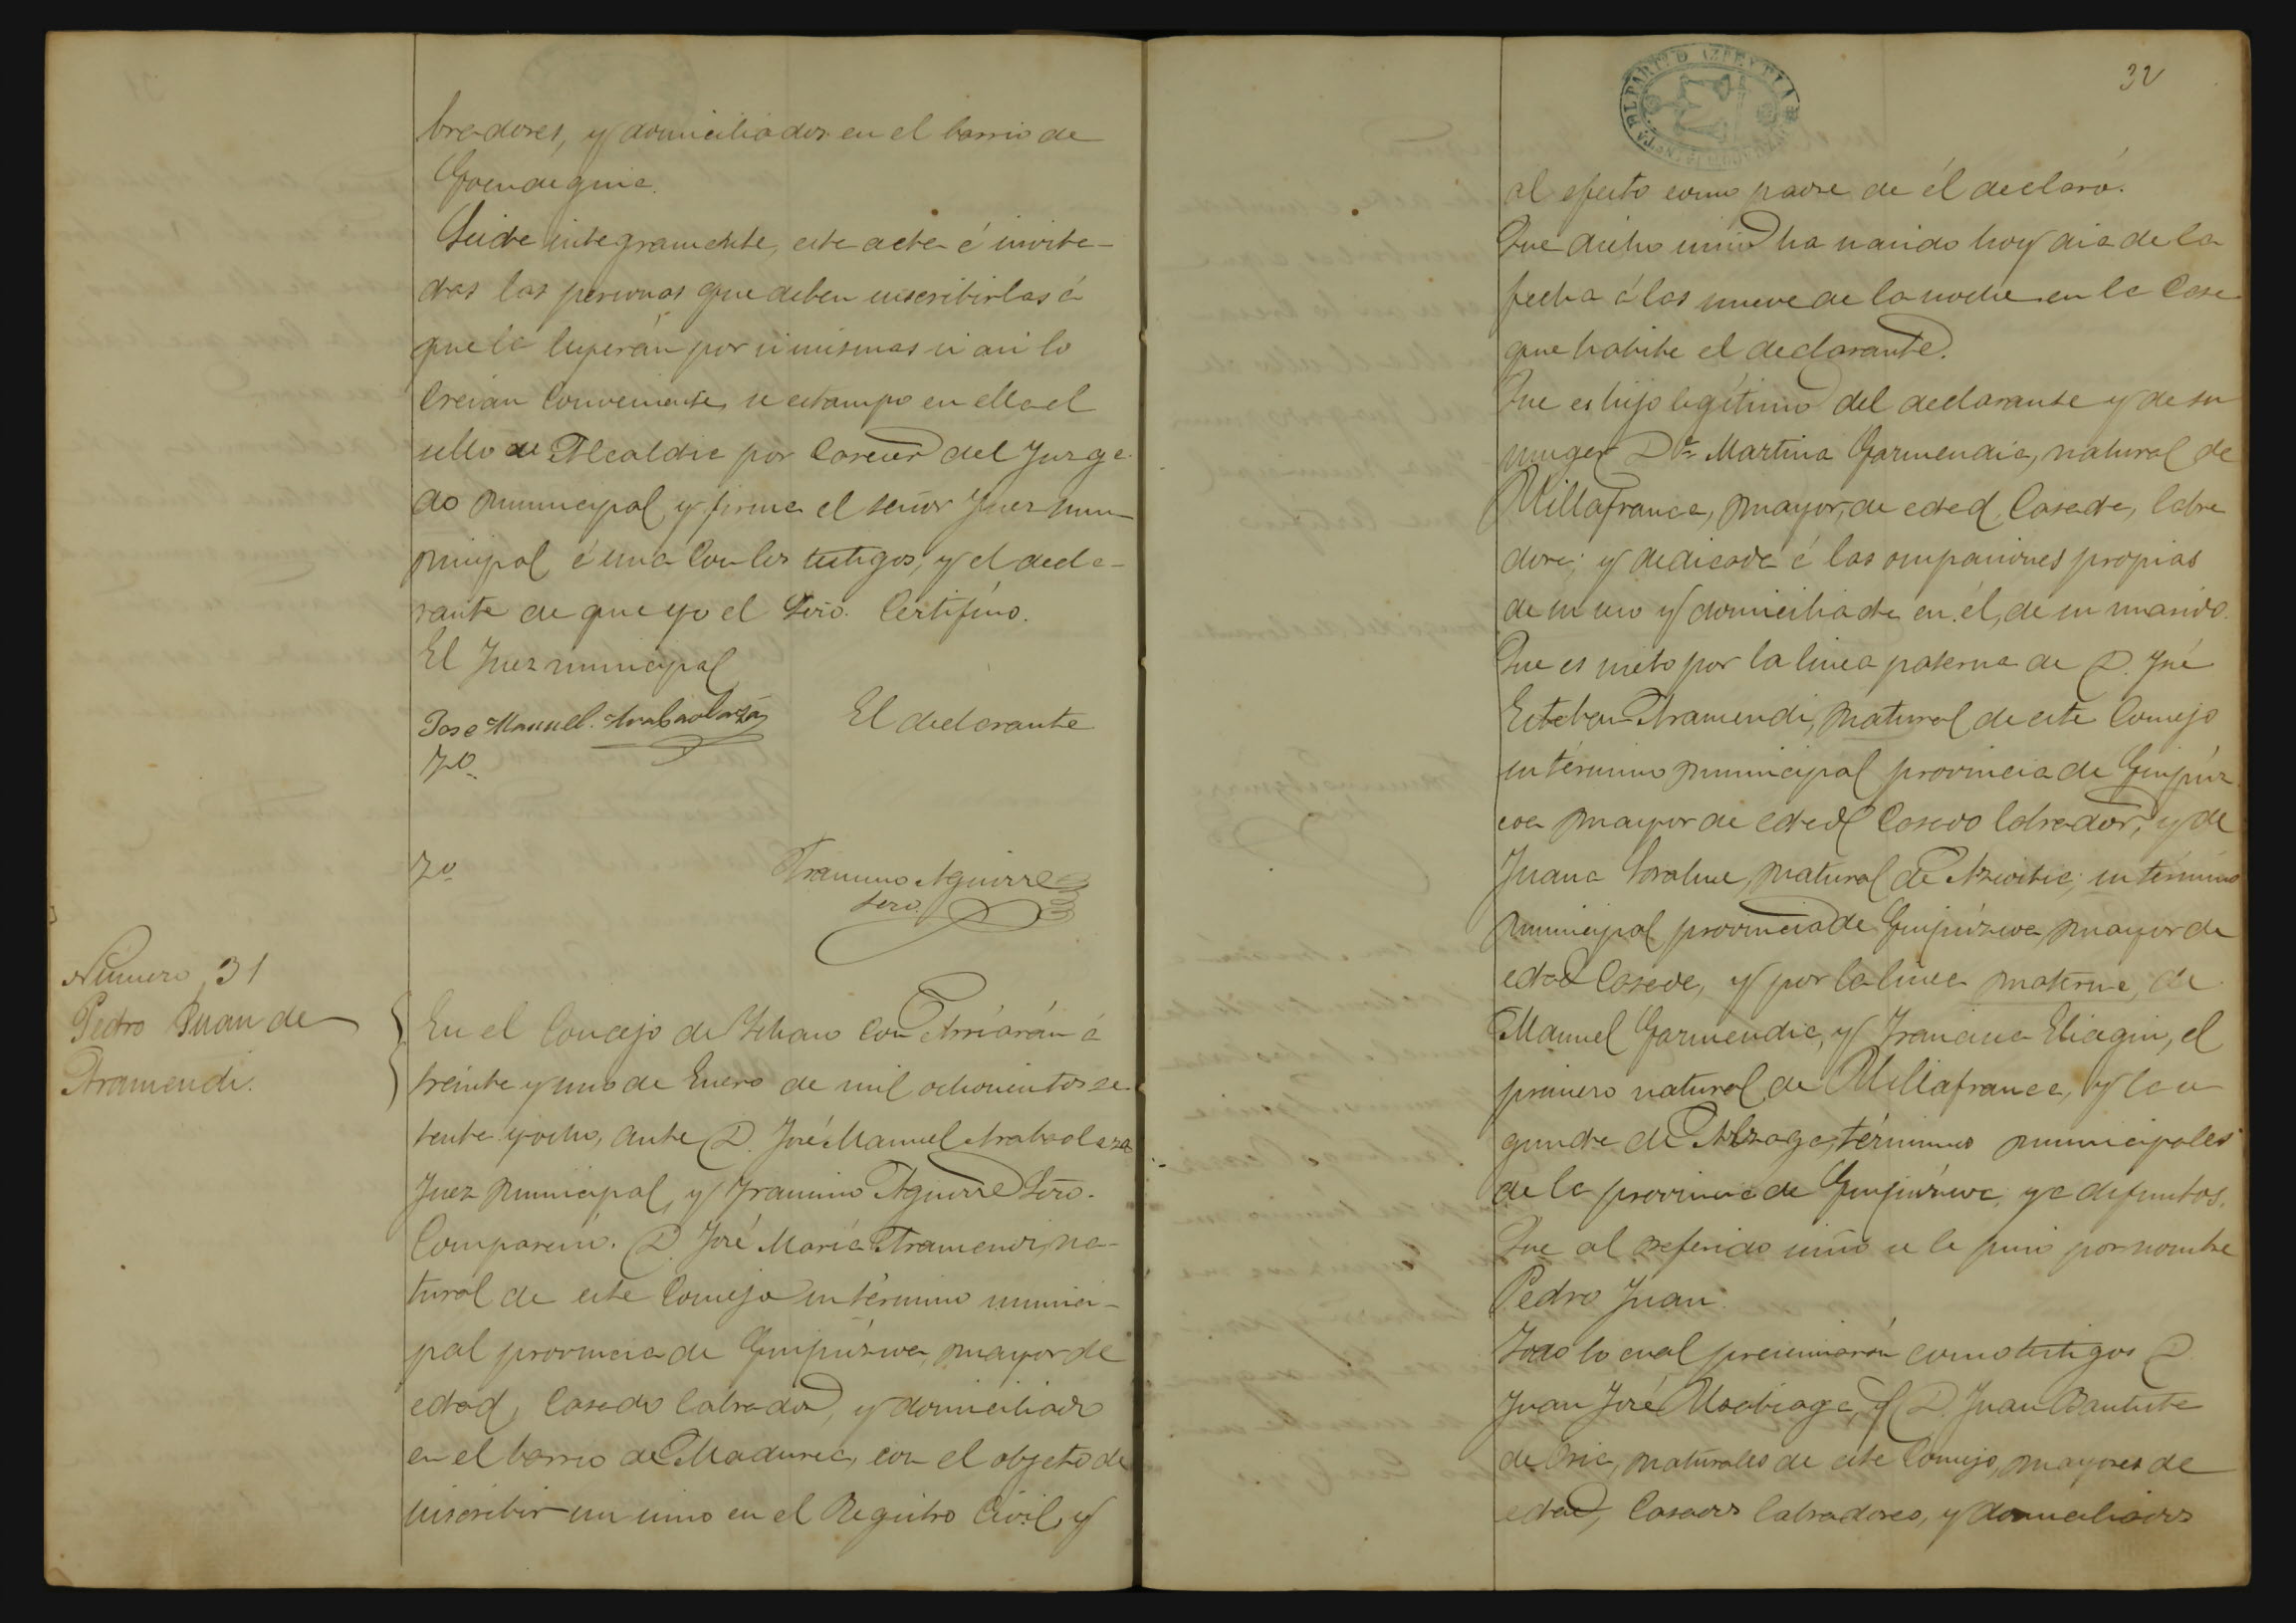 bradores, y domiciliados en el barrio de
Goendeguie.
Leida integramente, este acta é invita-
das las personas que deben suscribirlas á
que la leyeran por si mismas si asi lo
creian conveniente, se estampo en ella el
sello de Alcaldia por Carecer del Juzga
do municipal y firma el señor Juez mu-
nicipal é una con los testigos, y el decla-
rante de que yo el Srio. Certifico.
El Juez municipal
Jose Manuel Arabaolaza
El declarante
Francisco Aguirre
Srio.
Número 31
Pedro Juan de
Aramendi.
En el Concejo de Ichaso con Arriarán á
treinta y uno de Enero de mil ochocientos se-
tenta y ocho, ante D. José Manuel Arabaolaza
Juez municipal, y Francisco Aguirre Srio.
Compareció. D. José Maria Aramendi, na-
tural de este Concejo su término munici-
pal provincia de Guipúzcoa, mayor de
edad, Casado labrador, y domiciliado
en el barrio de Maduria, con el objeto de
inscribir un niño en el Registro Civil, y
32
PARTIDO AZPEITIA
al efecto como padre de él declaró.
Que dicho niño ha nacido hoy dia de la
fecha á las nueve de la noche en la Casa
que habita el declarante.
Que es hijo legítimo del declarante y de su
muger Dª Martina Garmendia, natural de
Villafranca, mayor, de edad, Casada, labra
dora; y dedicada á las ocupaciones propias
de su sexo y domiciliada en él, de su marido.
Que es nieto por la linea paterna de D. José
Esteban Aramendi, natural de este Concejo
su término municipal provincia de Guipúz
coa mayor de edad Casado labrador, y de
Juana natural de Azcoitia, su término
municipal provincia de Guipúzcoa, mayor de
edad Casada, y por la linea materna, de
Manuel Garmendia, y Francisca Eliagui, el
primero natural de Villafranca, y la se
gunda de Alzaga, términos municipales
de la provincia de Guipúzcoa, ya difuntos.
Que al referido niño se le puso por nombre
Pedro Juan.
Todo lo cual presenciarón como testigos D.
Juan José Usabiaga, y D. Juan Bautista
de Oria, naturales de este Concejo, mayores de
edad, Casados labradores, y domiciliados